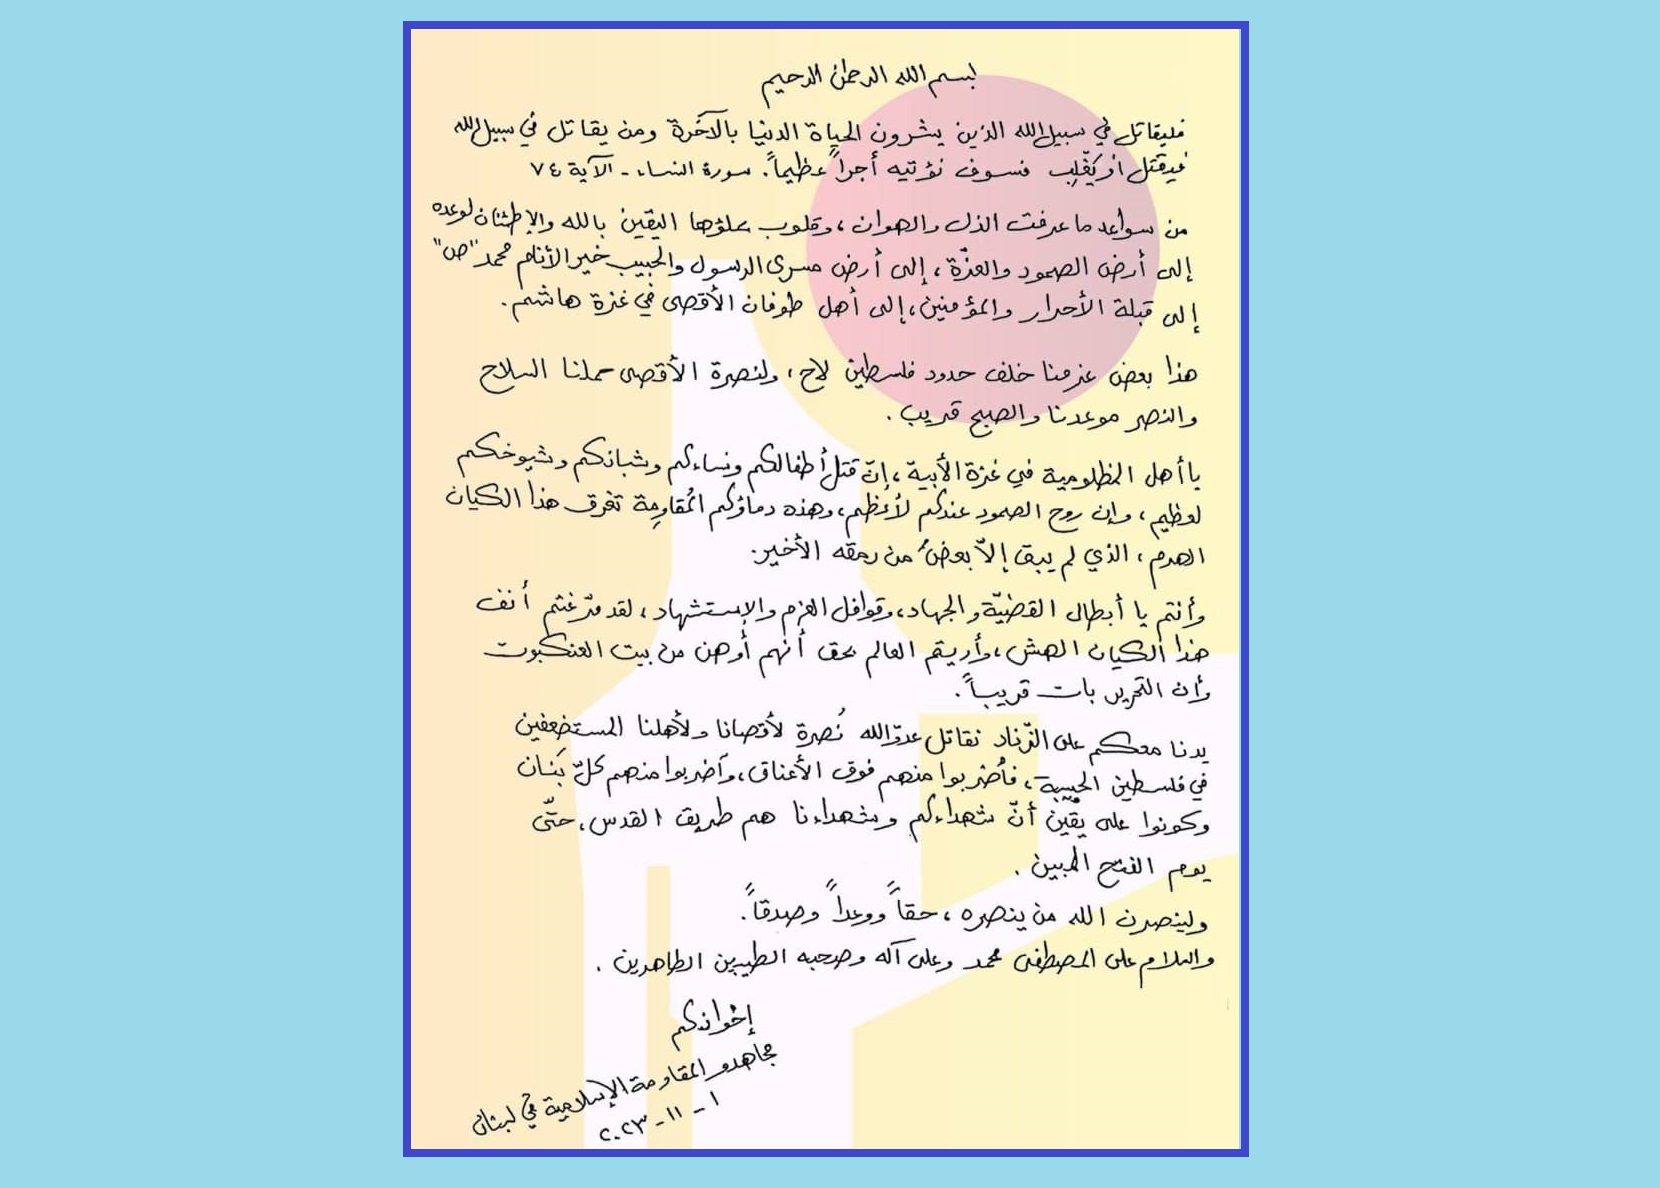 بسم الله الرحمن الرحيم
فليقاتل في سبيل الله الذين يشرون الحياة الدنيا بالآخرة ومن يقاتل في سبيل الله
فيقتل أو يَغْلِب فسوف نؤتيه أجراً عظيماً. سورة النساء - الآية ٧٤
من سواعد ما عرفت الذل والهوان، وقلوب ملؤها اليقين بالله والإطمئنان لوعده
إلى أرض الصمود والعزّة، إلى أرض مسرى الرسول والحبيب خير الأنام محمد "ص"
إلى قبلة الأحرار والمؤمنين، إلى أهل طوفان الأقصى في غزة هاشم.
هذا بعض عزمنا خلف حدود فلسطين لاح، ولنصرة الأقصى حملنا السلاح
والنصر موعدنا والصبح قريب.
يا أهل المظلومية في غزة الأبيّة، إنّ قتل أطفالكم ونساءكم وشبانكم وشيوخكم
لعظيم، وإن روح الصمود عندكم لأعظم، وهذه دماؤكم المُقاوِمة تغرق هذا الكيان
الهرم، الذي لم يبق إلاّ بعضٌ من رمقه الأخير.
وأنتم يا أبطال القضيّة والجهاد، وقوافل العزم والإستشهاد، لقد مرّغتم أنف
هذا الكيان الهش، وأريتم العالم بحق أنهم أوهن من بيت العنكبوت
وأن التحرير بات قريباً.
يدنا معكم على الزّناد نقاتل عدوّ الله نُصرة لأقصانا ولأهلنا المستضعفين
في فلسطين الحبيبة، فأضربوا منهم فوق الأعناق، وأضربوا منهم كلّ بَنَان
وكونوا على يقين أنّ شهداءكم وشهداءنا هم طريق القدس، حتّى
يوم الفتح المبين.
ولينصرن الله من ينصره، حقاً ووعداً وصدقاً.
والسلام على المصطفى محمد وعلى آله وصحبه الطيبين الطاهرين.
إخوانكم
مجاهدو المقاومة الإسلامية في لبنان
١ - ١١ - ٢٠٢٣